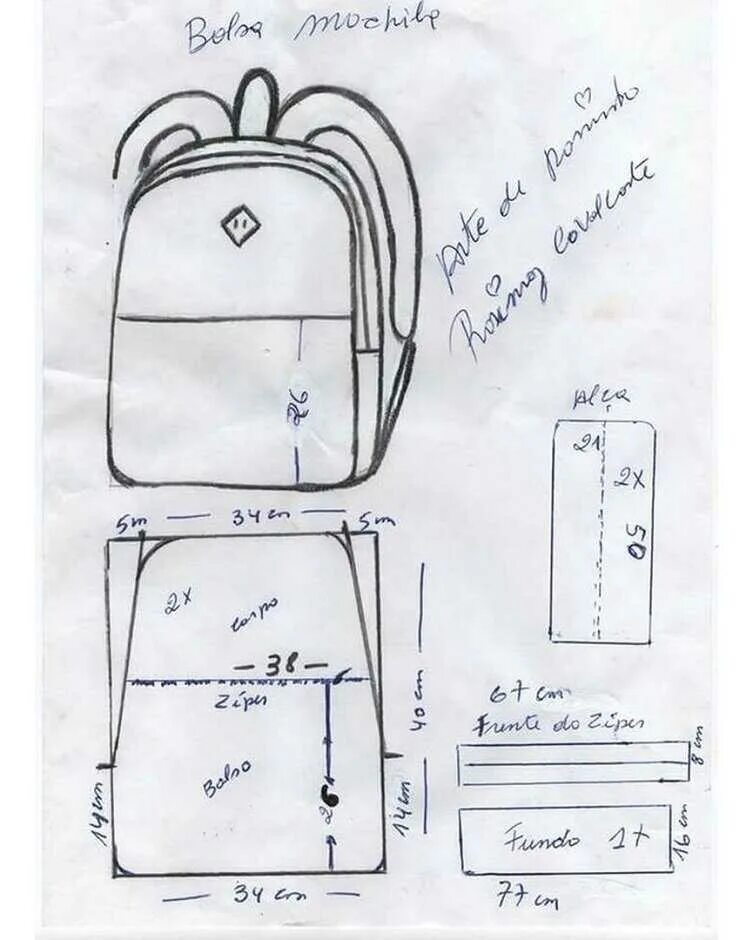 Bolsa mochila
Arte de
Rosimaz Cavalcante
26
Alça
21
2x
50
5m — 34 cm — 5m
2x
corpo
— 38 —
Ziper
40 cm
Bolso
26
14 cm
14 cm
— 34 cm —
67 cm
Frente do Ziper
8 cm
Fundo 1x
16 cm
77 cm